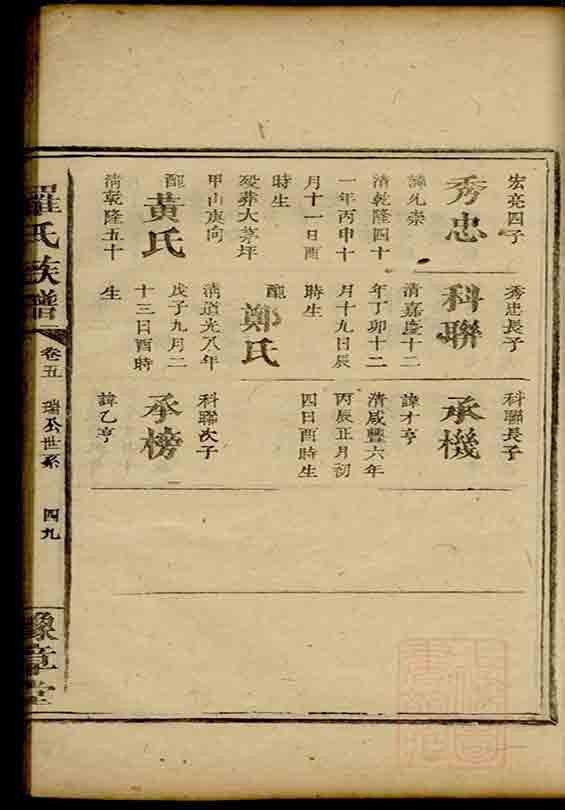 宏亮四子
秀忠
諱允崇
清乾隆四十
一年丙申十
月十一日酉
時生
歿葬大茅坪
甲山庚向
配
黃氏
清乾隆五十
秀忠長子
科聯
清嘉慶十二
年丁卯十二
月十九日辰
時生
配
鄭氏
清道光八年
戊子九月二
十三日酉時
生
科聯長子
承機
諱才亨
清咸豐六年
丙辰正月初
四日酉時生
科聯次子
承榜
諱乙亨
羅氏族譜
卷五
瑞公世系
四九
豫章堂